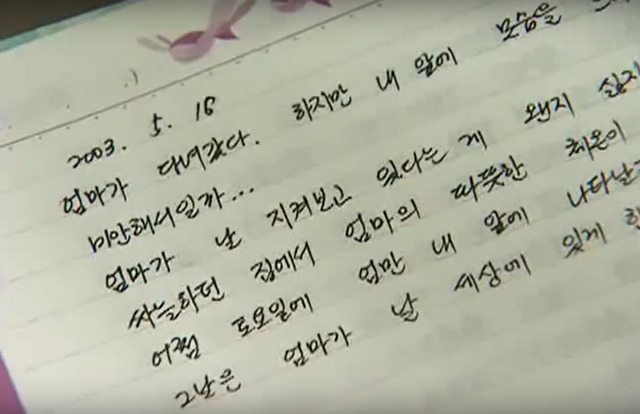 2003. 5. 16
엄마가 다녀갔다. 하지만 내 앞에 모습을
미안해서일까...
엄마가 날 지켜보고 있다는 게 왠지 싫지
싸늘하던 집에서 엄마의 따뜻한 체온이
어쩜 토요일에 엄만 내 앞에 나타날
그날은 엄마가 날 세상에 있게 한